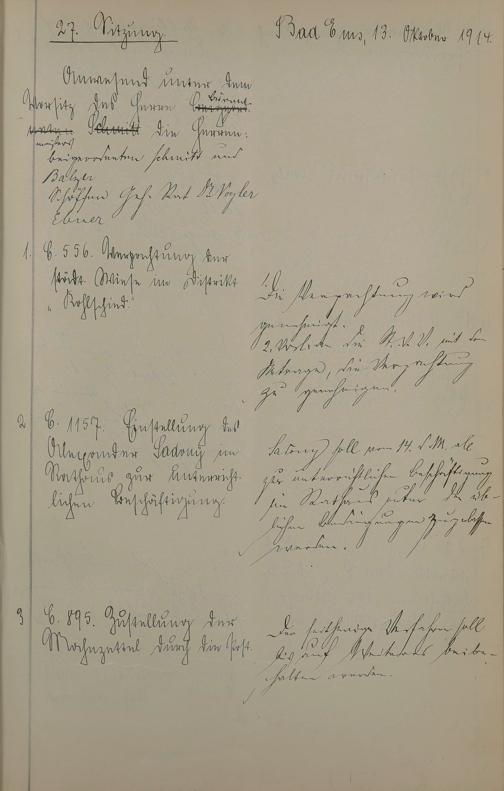 27. Sitzung.
Bad Ems, 13. Oktober 1914.
Anwesend unter dem
Vorsitz des Herrn Bürger-
meisters die Herren:
beigeordneten Schmitt und
Balzer
Schöffen Geh. Rat Dr. Vogler
Ebner
1. C. 556. Verpachtung der
städt. Wiese im Distrikt
"Kohlschied."
Die Verpachtung wird
genehmigt.
2. Vorlage an die St.V.V. mit dem
Antrage, die Verpachtung
zu genehmigen.
2 C. 1157. Einstellung des
Alexander Sadony im
Rathaus zur unterricht-
lichen Beschäftigung.
Sadony soll vom 14. d.M. ab
zur unterrichtlichen Beschäftigung
im Rathaus unter den üb-
lichen Bedingungen zugelassen
werden.
3 C. 895. Zustellung der
Mahnzettel durch die Post.
Das seitherige Verfahren soll
bis auf Weiteres beibe-
halten werden.